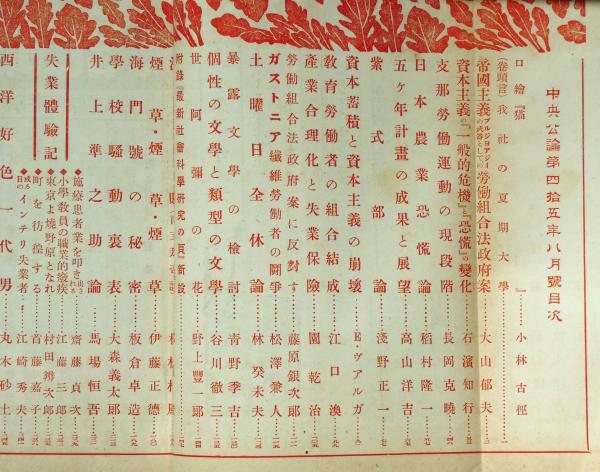 中央公論第四拾五年八月號目次
口繪『猫』 小林古徑
(卷頭言)我社の夏期大學
帝國主義ブルジョアジーの武器としての勞働組合法政府案 大山郁夫
資本主義の『一般的危機』と『恐慌』の變化 石濱知行
支那勞働運動の現段階 長岡克曉
日本農業恐慌論 稻村隆一
五ヶ年計畫の成果と展望 高山洋吉
紫式部論 淺野正一
資本蓄積と資本主義の崩壞 E・ヴアルガ
敎育勞働者の組合結成 江口渙
產業合理化と失業保險 園乾治
勞働組合法政府案に反對す 藤原銀次郎
ガストニア纖維勞働者の鬪爭 松澤兼人
土曜日全休論 林癸未夫
暴露文學の檢討 靑野季吉
個性の文學と類型の文學 谷川徹三
世阿彌の花 野上豐一郎
附錄『最新社會科學硏究の頁』新設
煙草・煙草・煙草 伊藤正德
海門號の秘密 板倉卓造
學校騷動裏表 大森義太郎
井上準之助論 馬場恒吾
失業體驗記
◆施療患者業を叩き出される 齋藤貞次
◆小學敎員の職業的癈疾 江藤三郎
◆東京よ燒野原となれ 村田辨次郎
◆町を彷徨する 首藤嘉子
◆或る日のインテリ失業者 江崎秀夫
西洋好色一代男 丸木砂土